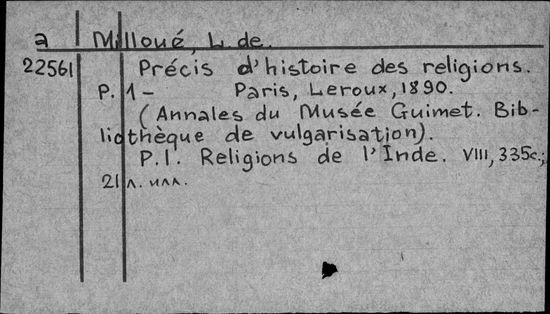 a Milloué, L. de.
22561 Précis d'histoire des religions.
P. 1 – Paris, Leroux, 1890.
(Annales du Musée Guimet. Bib-
liothèque de vulgarisation).
P.I. Religions de l'Inde. VIII, 335с.;
21 л. илл.